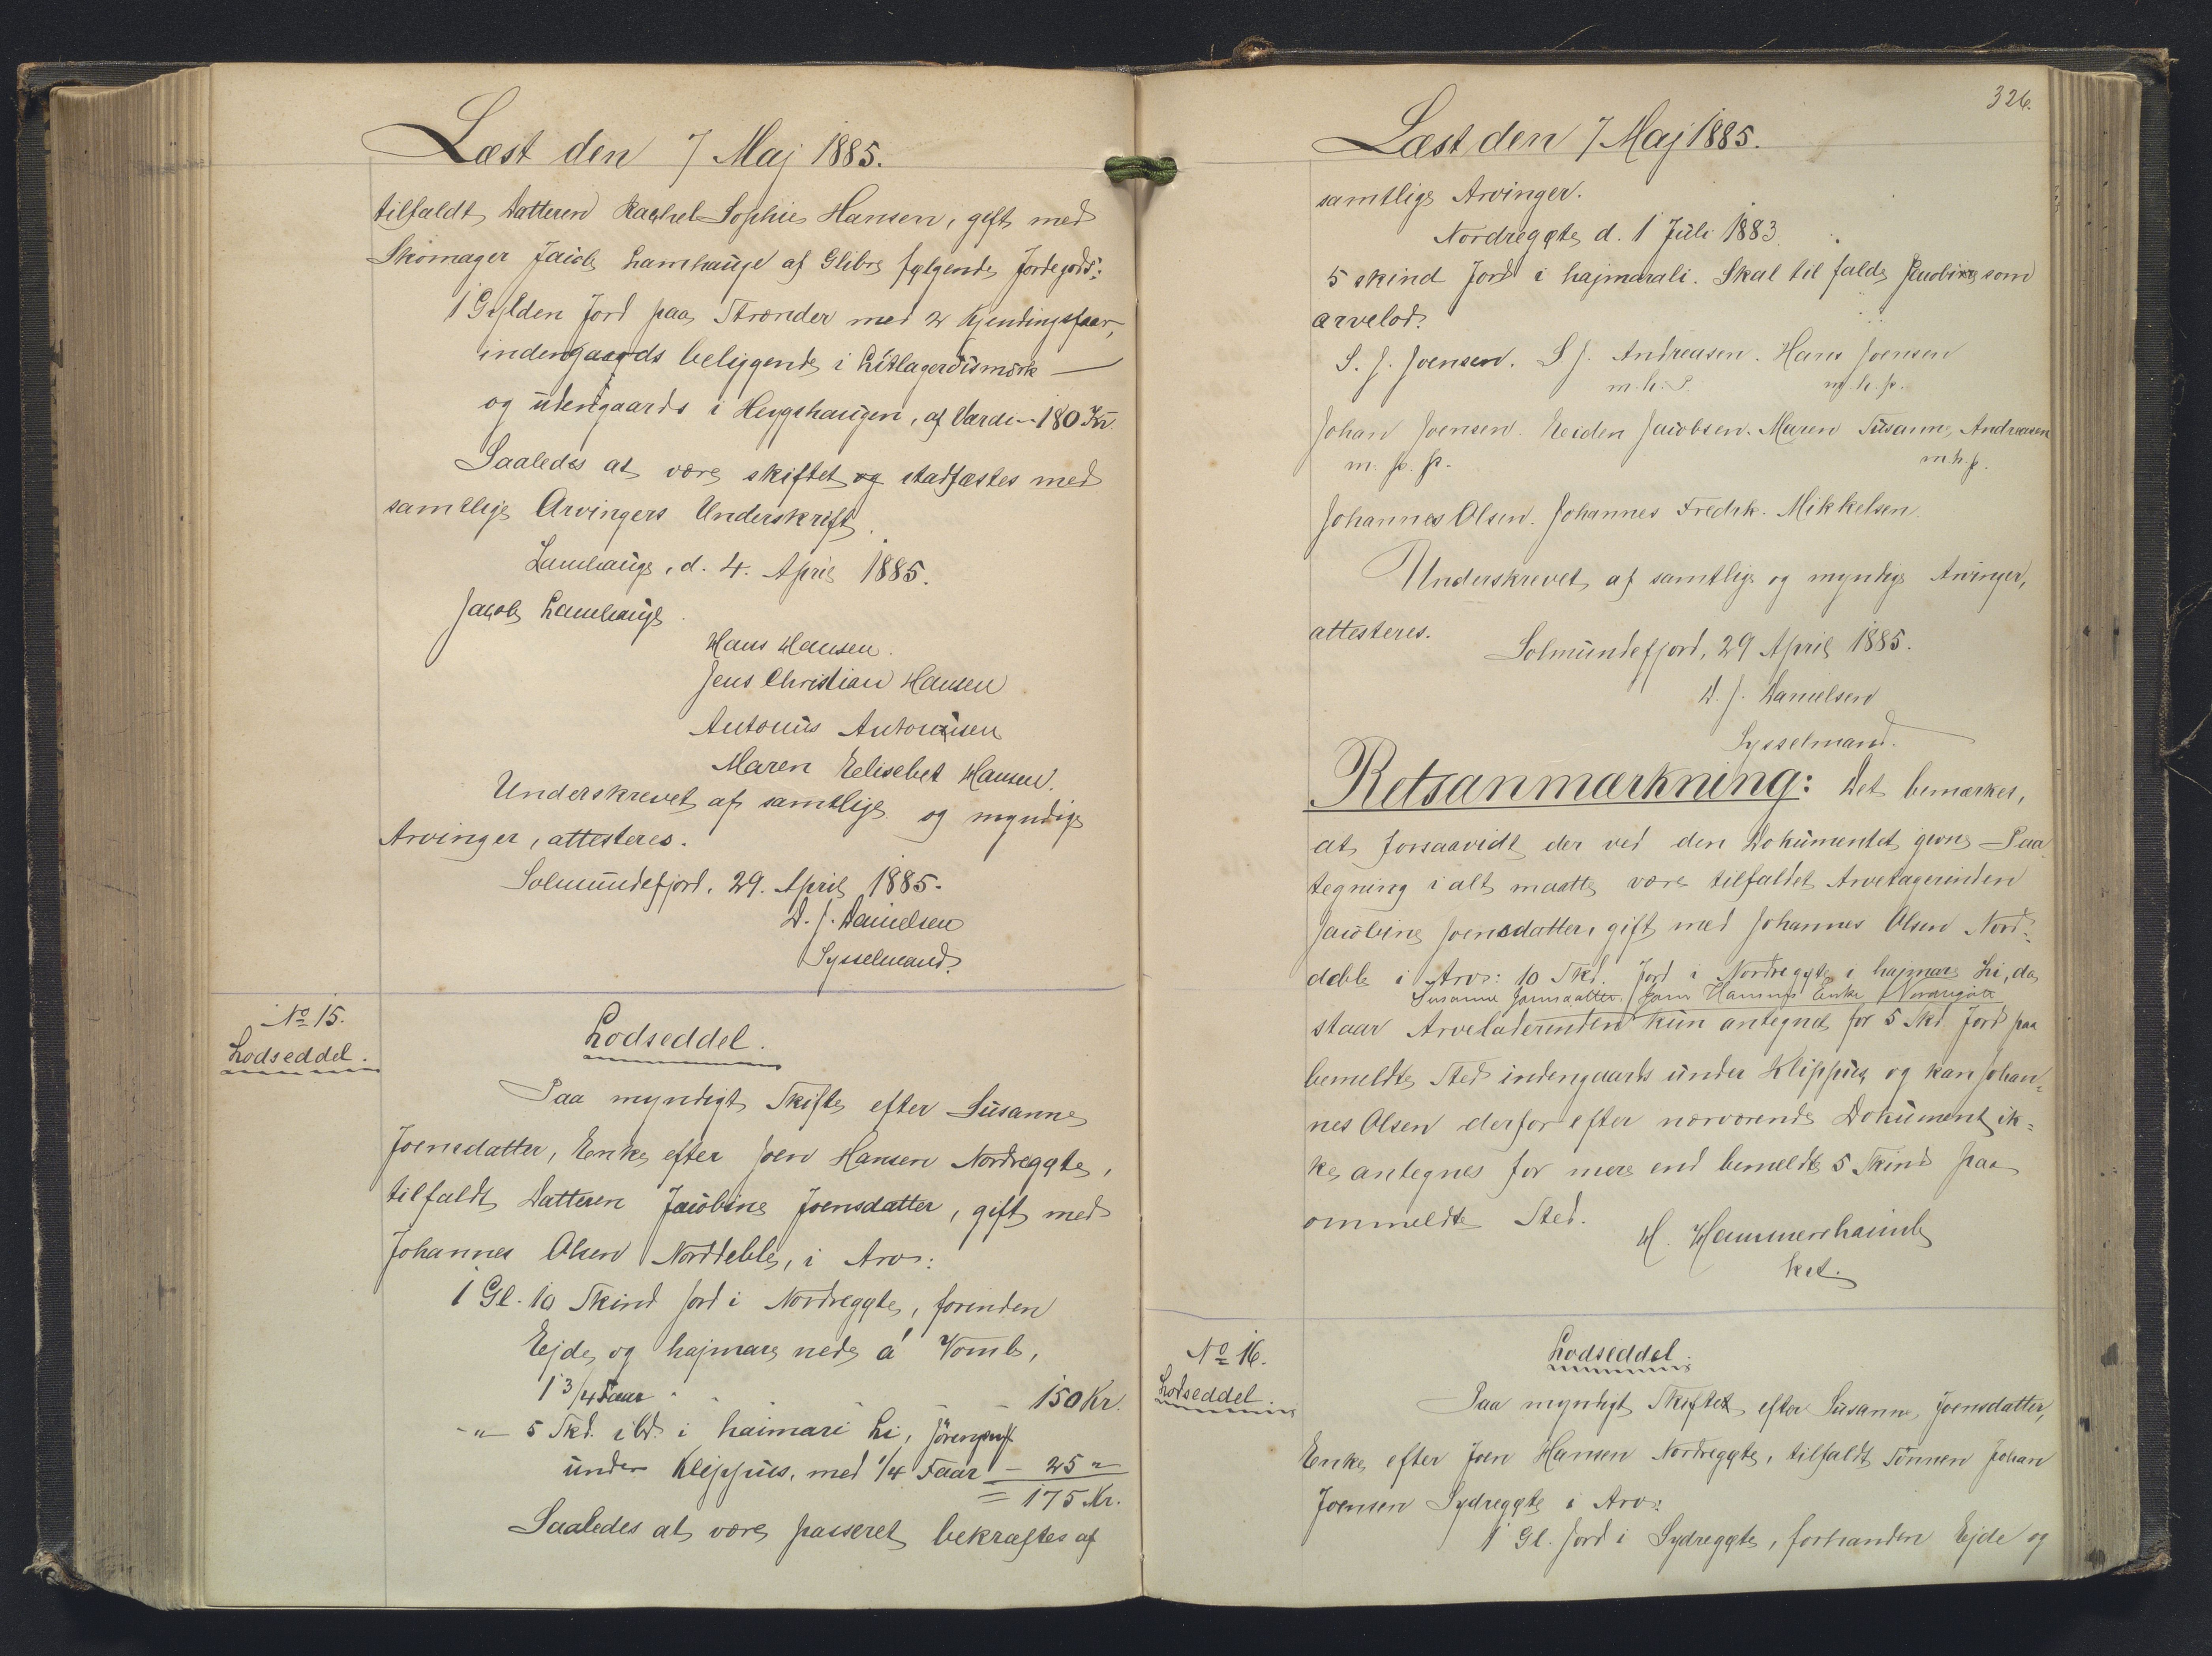 Læst den 7 Maj 1885.
tilfaldt Datteren Rachel Sophie Hansen, gift med
Skomager Jacob Lamhauge af Glibre følgende Jordegods:
1 Gylden Jord paa Strænder med 2 Kjendingsfaar,
indengaards beliggende i Litlagerdismørk
og udengaards i Heygshaugen, af Værdi - 180 Kr.
Saaledes at være skiftet og stadfæstes med
samtlige Arvingers Underskrift.
Lamhauge, d. 4. April 1885.
Jacob Lamhauge
Hans Hansen.
Jens Christian Hansen
Antonius Antoniusen
Maren Eelisebet Hansen.
Underskrevet af samtlige og myndige
Arvinger, attesteres.
Solmundefjord, 29. April 1885.
D. J. Danielsen
Sysselmand.
No 15.
Lodseddel.
Lodseddel.
Paa myndigt Skifte efter Susanne
Joensdatter, Enke efter Joen Hansen Nordregøte,
tilfaldt Datteren Jacobine Joensdatter, gift med
Johannes Olsen Norddeble, i Arv:
1 Gl. 10 Skind Jord i Nordregøte, forinden
Ejde og hajmare nede á Vomb,
1 3/4 Faar - - - 150 Kr.
-"- 5 Skd. ibd. i haimari Li,
under Klippus, med 1/4 Faar - 25 "
= 175 Kr.
Saaledes at være passeret bekræftes af
326.
Læst den 7 Maj 1885.
samtlige Arvinger.
Nordregøte d. 1 Juli 1883.
5 skind Jord i hajmarali. Skal til falde Jacobine som
arvelod.
S. J. Joensen. S J. Andreasen. Hans Joensen
m. h. P. m. h. p.
Johan Joensen. Eeiden Jacobsen. Maren Susanne Andreasen
m. p. p. m. h. p.
Johannes Olsen. Johannes Fredrk. Mikkelsen.
Underskrevet af samtlige og myndige Arvinger,
attesteres.
Solmundefjord, 29 April 1885.
D. J. Danielsen
Sysselmand.
Retsanmærkning: Det bemærkes,
at forsaavidt der ved den Dokumentet givne Paa
tegning i alt maatte være tilfaldet Arvetagerinden
Jacobine Joensdatter, gift med Johannes Olsen Nord=
deble i Arv: 10 Skd. Jord i Nordregøte i hajmare Li, da
Susanne Joensdatter, Joen Hansens Enke Nordregøte
staar Arveladerinden kun antegnet for 5 Skd. Jord paa
bemeldte Sted indengaards under Klippus og kan Johan=
nes Olsen derfor efter nærværende Dokument ik=
ke antegnes for mere end bemeldte 5 Skind paa
ommeldte Sted.
H. Hammershaimb
kst.
No 16.
Lodseddel.
Lodseddel.
Paa myndigt Skiftet efter Susanne Joensdatter,
Enke efter Joen Hansen Nordregøte, tilfaldt Sønnen Johan
Joensen Sydregøte i Arv:
1 Gl. Jord i Sydregøte, forhanden Ejde og